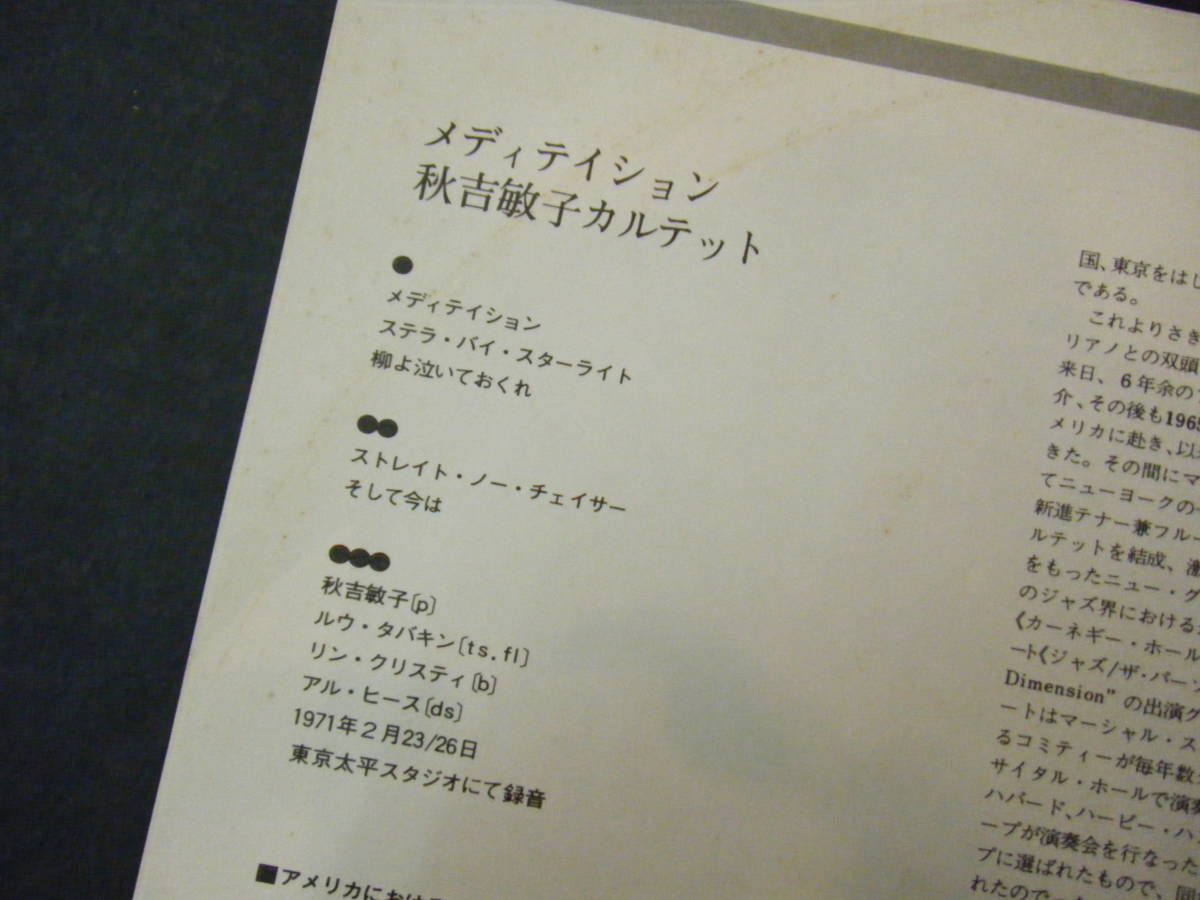 メディテイション
秋吉敏子カルテット
●
メディテイション
ステラ・バイ・スターライト
柳よ泣いておくれ
●●
ストレイト・ノー・チェイサー
そして今は
●●●
秋吉敏子〔p〕
ルウ・タバキン〔ts.fl〕
リン・クリスティ〔b〕
アル・ヒース〔ds〕
1971年2月23/26日
東京太平スタジオにて録音
■アメリカにおける
国、東京をはじ
である。
これよりさき
リアノとの双頭
来日、6年余の
介、その後も1965
メリカに赴き、以来
きた。その間にマ
てニューヨークの
新進テナー兼フルー
ルテットを結成、激
をもったニュー・グ
のジャズ界における
《カーネギー・ホール
ート《ジャズ/ザ・パーソ
Dimension”の出演グ
ートはマーシャル・ス
るコミティーが毎年数
サイタル・ホールで演奏
ハバード、ハービー・ハ
ープが演奏会を行なった
プに選ばれたもので、同
れたので